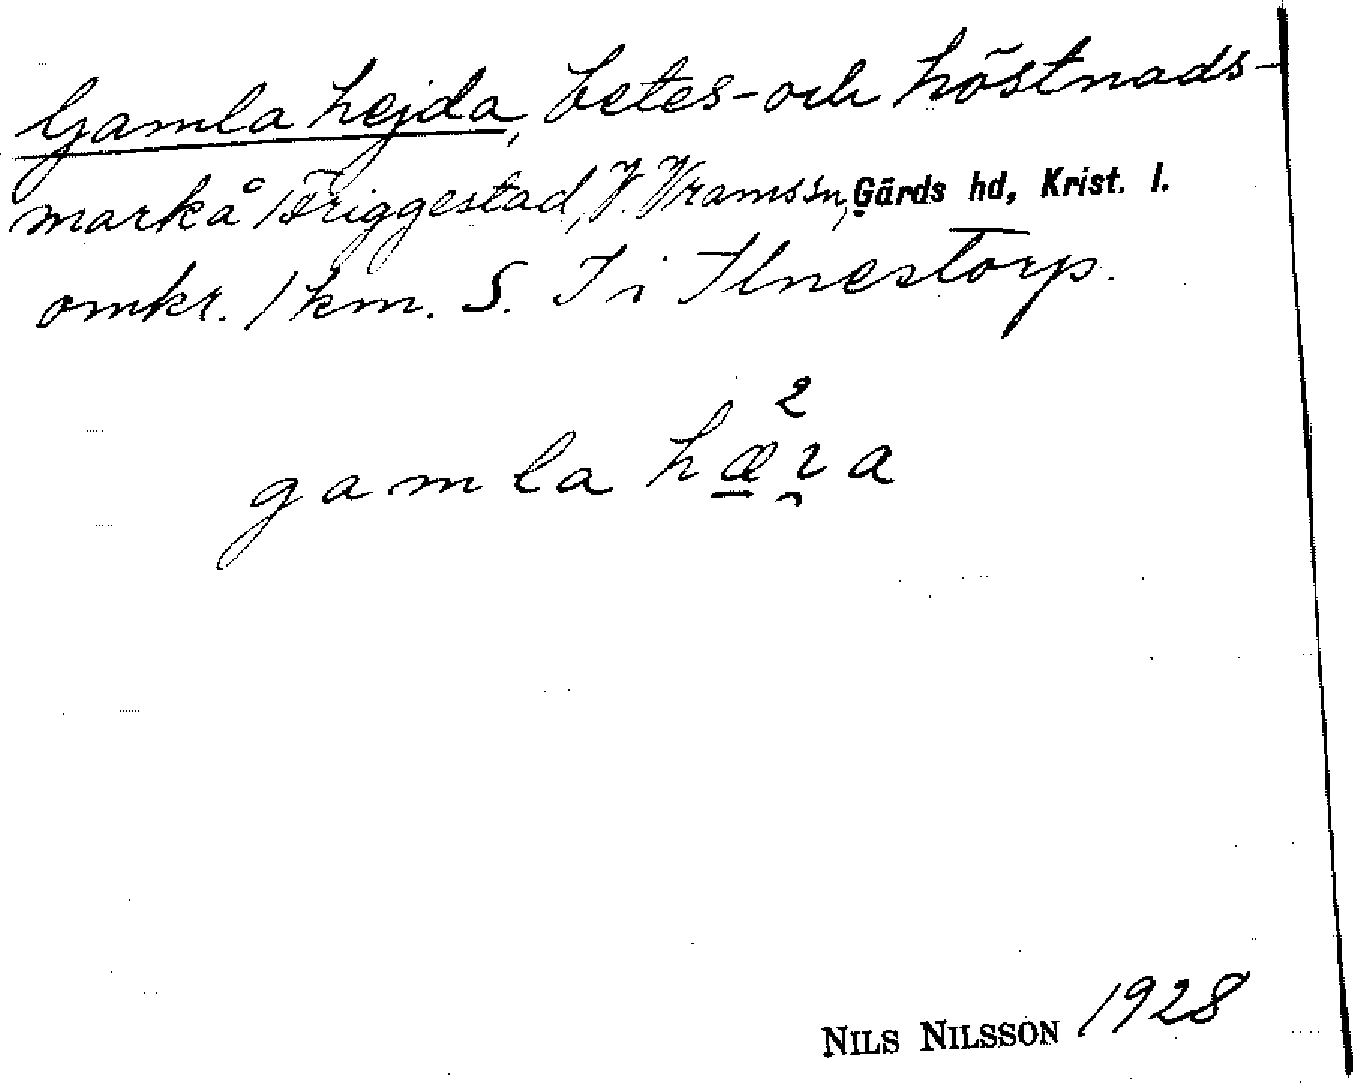 Gamla hejda, betes- och höstnads-
mark å Briggestad, V. Vrams sn, Gärds hd, Krist. l.
omkr. 1 km. S. I i Ilnestorp.
2
gamla hæra
NILS NILSSON 1928